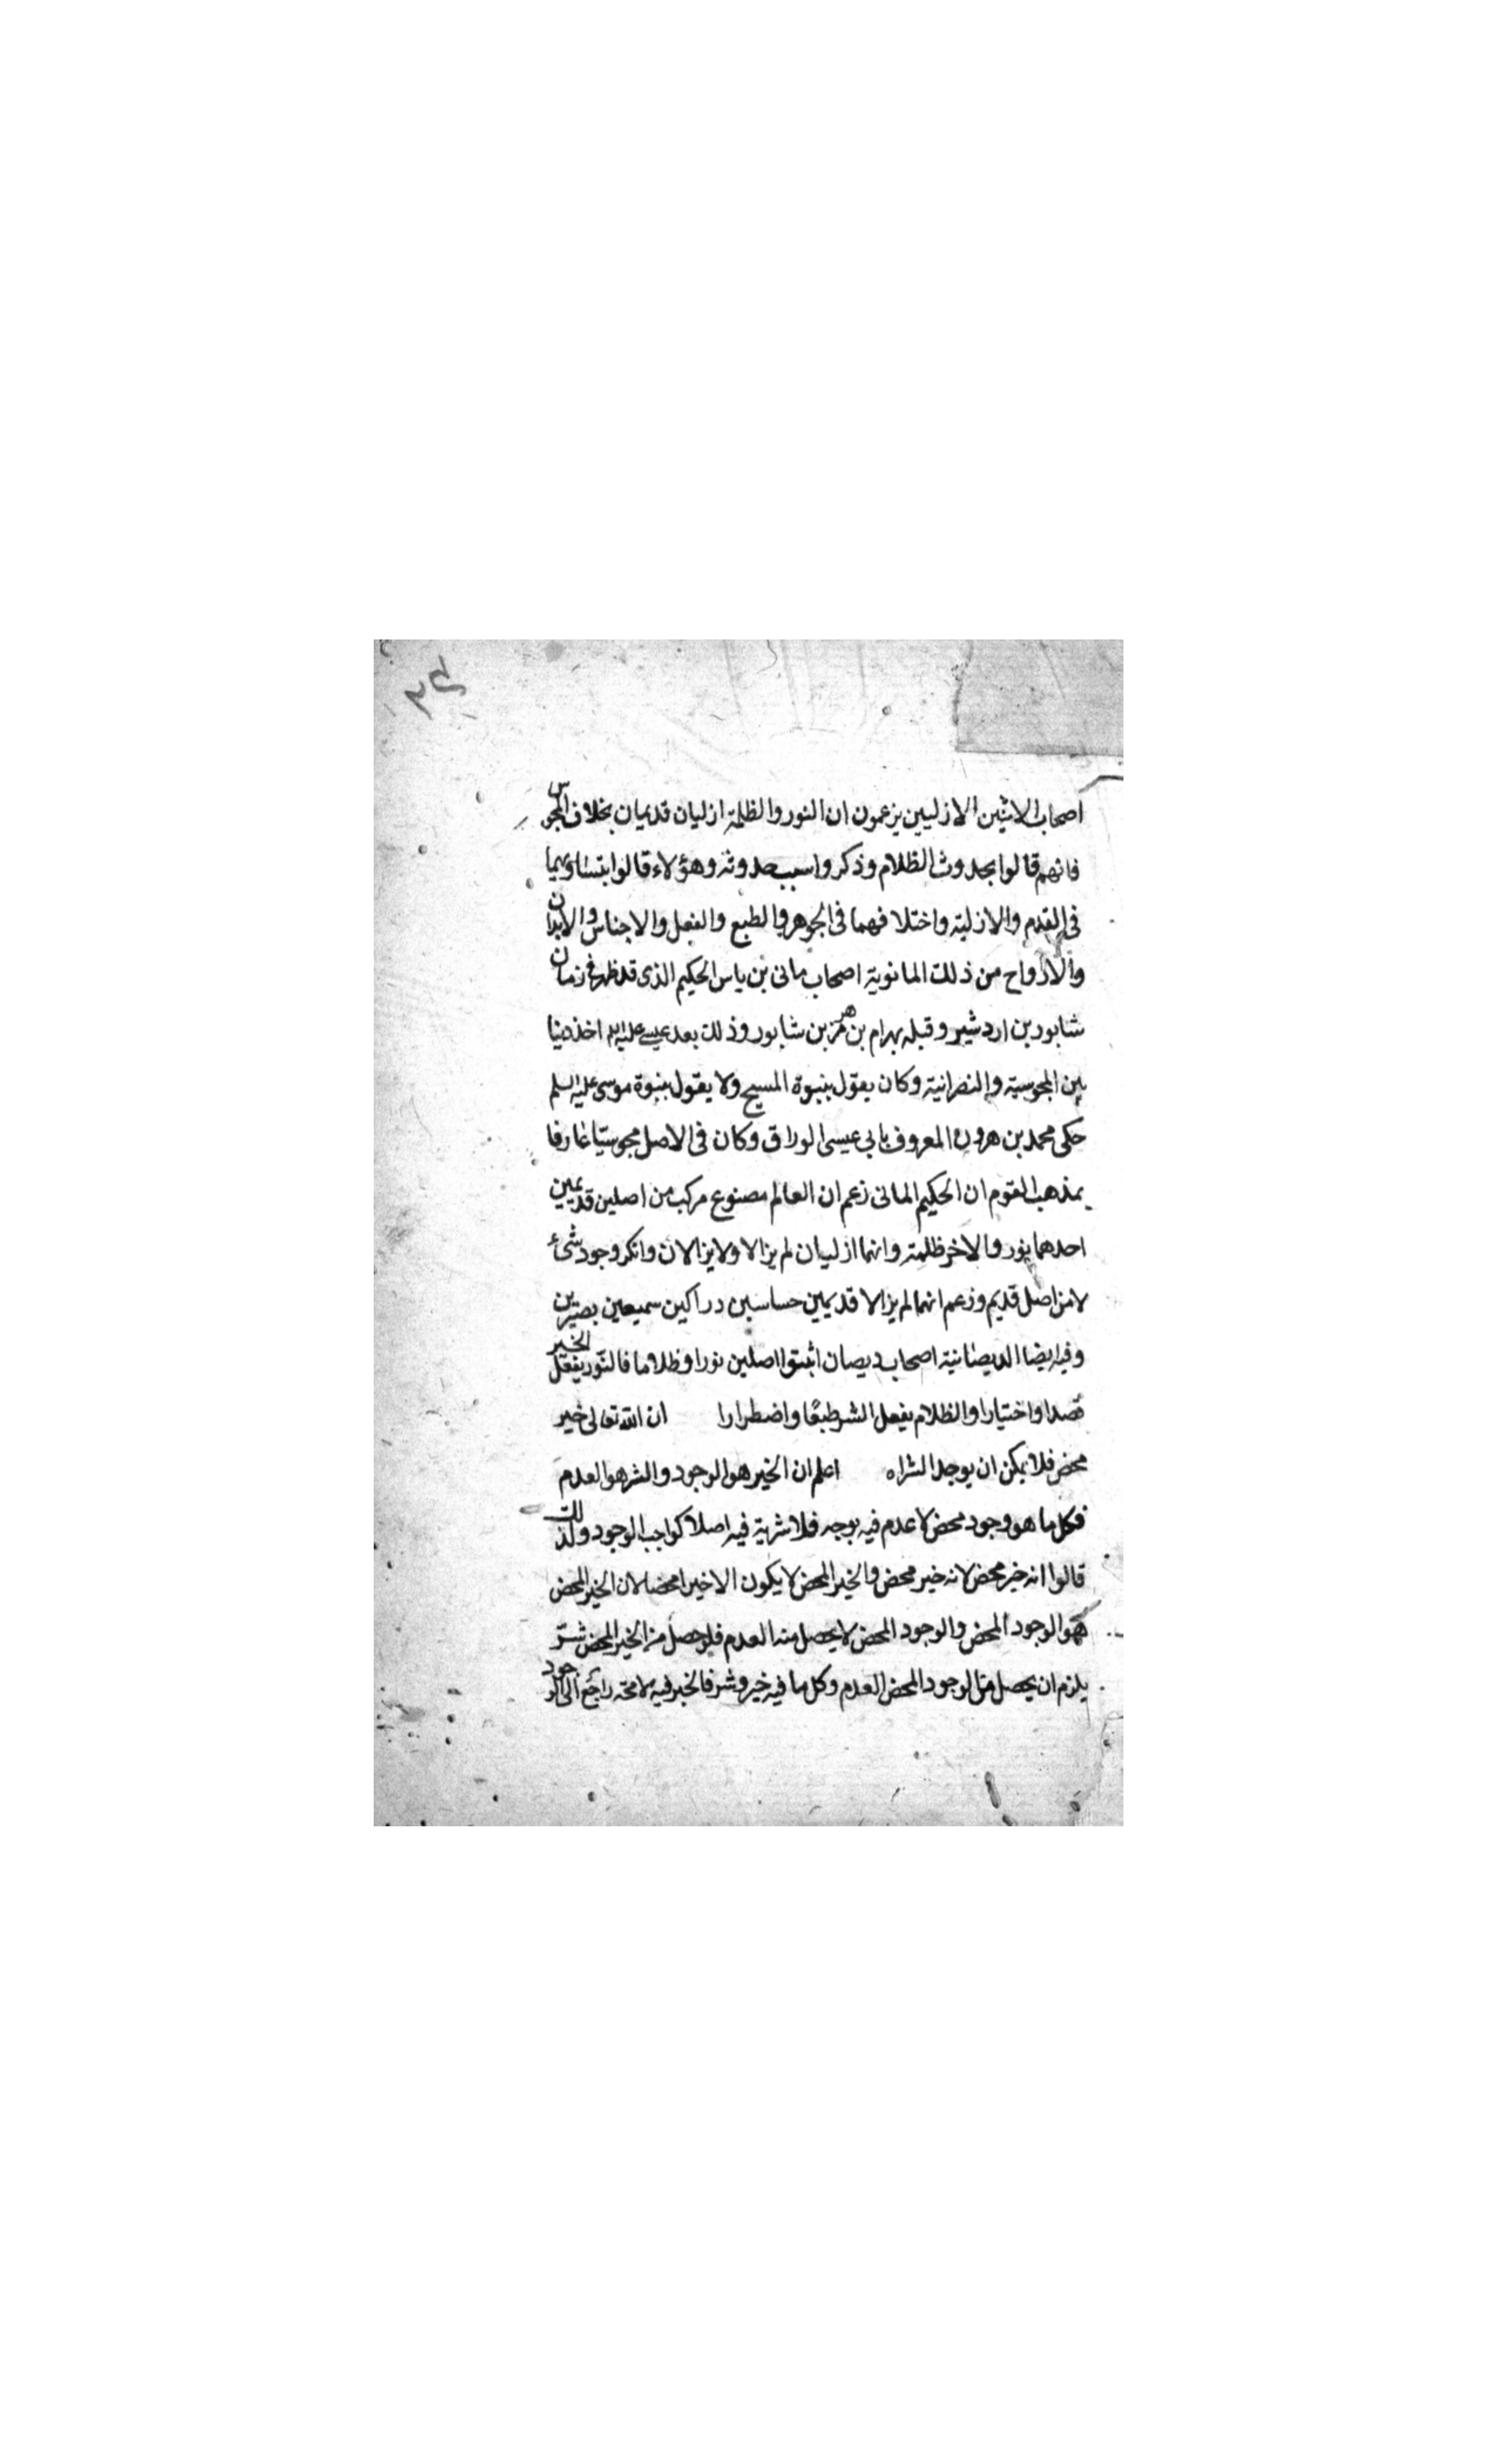 اصحاب الاثنين الازليين يزعمون ان النور والظلمة ازليان قديمان بخلاف المجوس
فانهم قالوا بحدوث الظلام وذكروا سبب حدوثه وهؤلاء قالوا بتساويهما
فى القدم والازلية واختلافهما فى الجوهر والطبع والفعل والاجناس والابدان
والارواح من ذلك المانوية اصحاب مانى بن ياس الحكيم الذى قد ظهر فى زمان
شابور بن اردشير وقبله بهرام بن هرمز بن شابور وذلك بعد عيسى عليه اخذ دينا
بين المجوسية والنصرانية وكان يقول بنبوة المسيح ولا يقول بنبوة موسى عليه السلم
حكى محمد بن هرون المعروف بابى عيسى الوراق وكان فى الاصل مجوسيا عارفا
بمذهب القوم ان الحكيم المانى زعم ان العالم مصنوع مركب من اصلين قديمين
احدهما نور والاخر ظلمة وانهما ازليان لم يزالا ولا يزالان وانكر وجود شئ
لا من اصل قديم وزعم انهما لم يزالا قديمين حساسين دراكين سميعين بصيرين
وفيه ايضا الديصانية اصحاب ديصان اثبتوا اصلين نورا وظلاما فالنور يفعل الخير
قصدا واختيارا والظلام يفعل الشر طبعا واضطرارا ان الله تعالى خير
محض فلا يمكن ان يوجد الشر اه اعلم ان الخير هو الوجود والشر هو العدم
فكل ما هو وجود محض لا عدم فيه بوجه فلا شرية فيه اصلا كواجب الوجود ولذلك
قالوا انه خير محض لانه خير محض والخير المحض لا يكون الا خيرا محضا لان الخير المحض
هو الوجود المحض والوجود المحض لا يحصل منه العدم فلو حصل من الخير المحض شر
يلزم ان يحصل من الوجود المحض العدم وكل ما فيه خير وشر فالخير فيه لا محة راجع الى الوجود